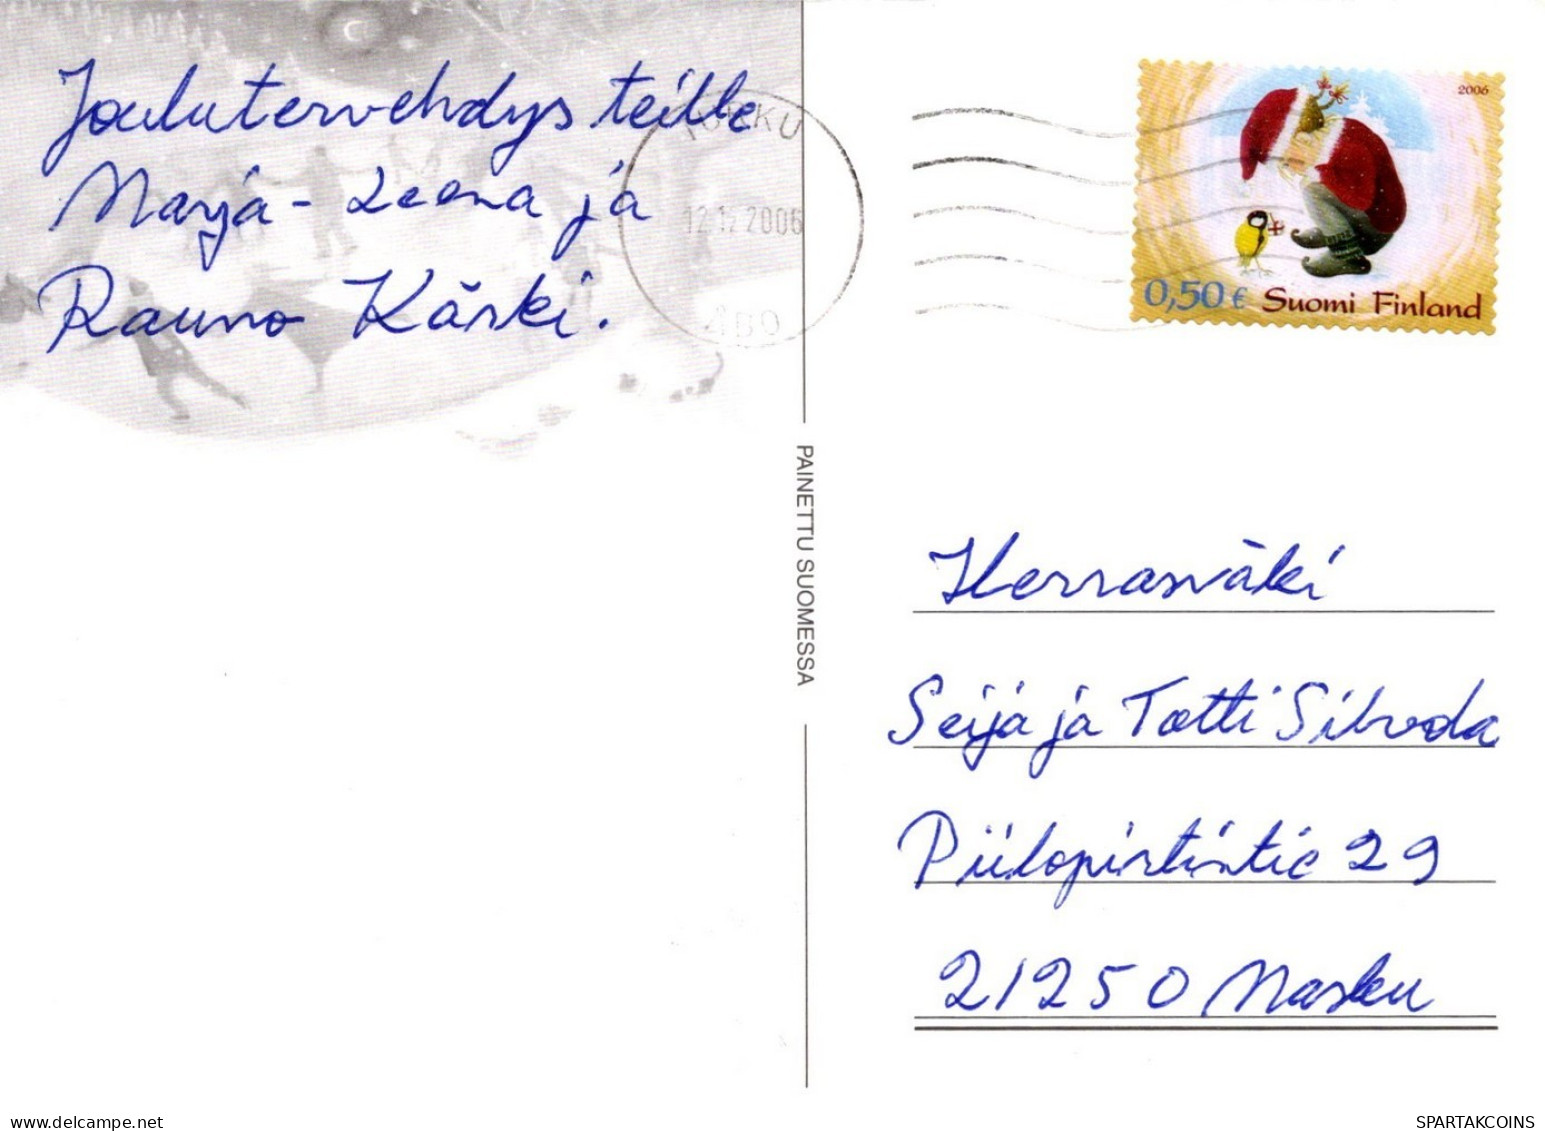 Joulutervehdys teille
Marja-Leena ja
Rauno Kärki.
TURKU
12.12.2006
ÅBO
2006
0,50 € Suomi Finland
PAINETTU SUOMESSA
Herrasväki
Seija ja Totti Silvola
Piilopirtintie 29
21250 Masku
www.delcampe.net
SPARTAKCOINS